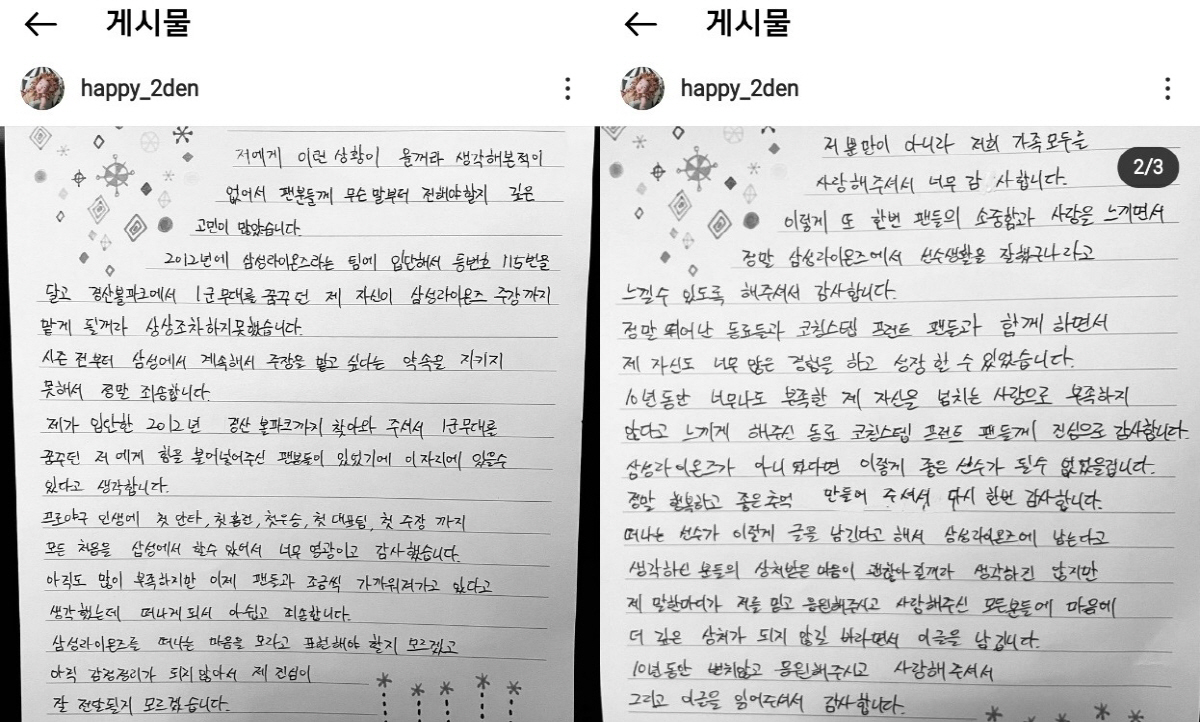 게시물
happy_2den
저에게 이런 상황이 올꺼라 생각해본적이
없어서 팬분들께 무슨 말부터 전해야할지 깊은
고민이 많았습니다.
2012년에 삼성라이온즈라는 팀에 입단해서 등번호 115번을
달고 경산볼파크에서 1군무대를 꿈꾸던 제 자신이 삼성라이온즈 주장까지
맡게 될꺼라 상상조차하지못했습니다.
시즌 전부터 삼성에서 계속해서 주장을 맡고 싶다는 약속을 지키지
못해서 정말 죄송합니다.
제가 입단한 2012년 경산 볼파크까지 찾아와 주셔서 1군무대를
꿈꾸던 저에게 힘을 불어넣어주신 팬분들이 있었기에 이자리에 있을수
있다고 생각합니다.
프로야구 인생에 첫 안타, 첫홈런, 첫우승, 첫 대표팀, 첫 주장 까지
모든 처음을 삼성에서 할수 있어서 너무 영광이고 감사했습니다.
아직도 많이 부족하지만 이제 팬들과 조금씩 가까워져가고 있다고
생각했는데 떠나게 되서 아쉽고 죄송합니다.
삼성라이온즈를 떠나는 마음을 모라고 표현해야 할지 모르겠고
아직 감정정리가 되지 않아서 제 진심이
잘 전달될지 모르겠습니다.
게시물
happy_2den
2/3
저 뿐만이 아니라 저희 가족모두를
사랑해주셔서 너무 감사합니다.
이렇게 또 한번 팬들의 소중함과 사랑을 느끼면서
정말 삼성라이온즈에서 선수생활을 잘했구나라고
느낄수 있도록 해주셔서 감사합니다.
정말 뛰어난 동료들과 코칭스텝 프런트 팬들과 함께 하면서
제 자신도 너무 많은 경험을 하고 성장 할 수 있었습니다.
10년동안 너무나도 부족한 제 자신을 넘치는 사랑으로 부족하지
않다고 느끼게 해주신 동료 코칭스텝 프런트 팬들께 진심으로 감사합니다.
삼성라이온즈가 아니였다면 이렇게 좋은 선수가 될수 없었을겁니다.
정말 행복하고 좋은추억 만들어 주셔서 다시 한번 감사합니다.
떠나는 선수가 이렇게 글을 남긴다고 해서 삼성라이온즈에 남는다고
생각하신 분들의 상처받은 마음이 괜찮아 질꺼라 생각하진 않지만
제 말한마디가 저를 믿고 응원해주시고 사랑해주신 모든분들에 마음에
더 깊은 상처가 되지 않길 바라면서 이글을 남깁니다.
10년동안 변치않고 응원해주시고 사랑해주셔서
그리고 이글을 읽어주셔서 감사합니다.